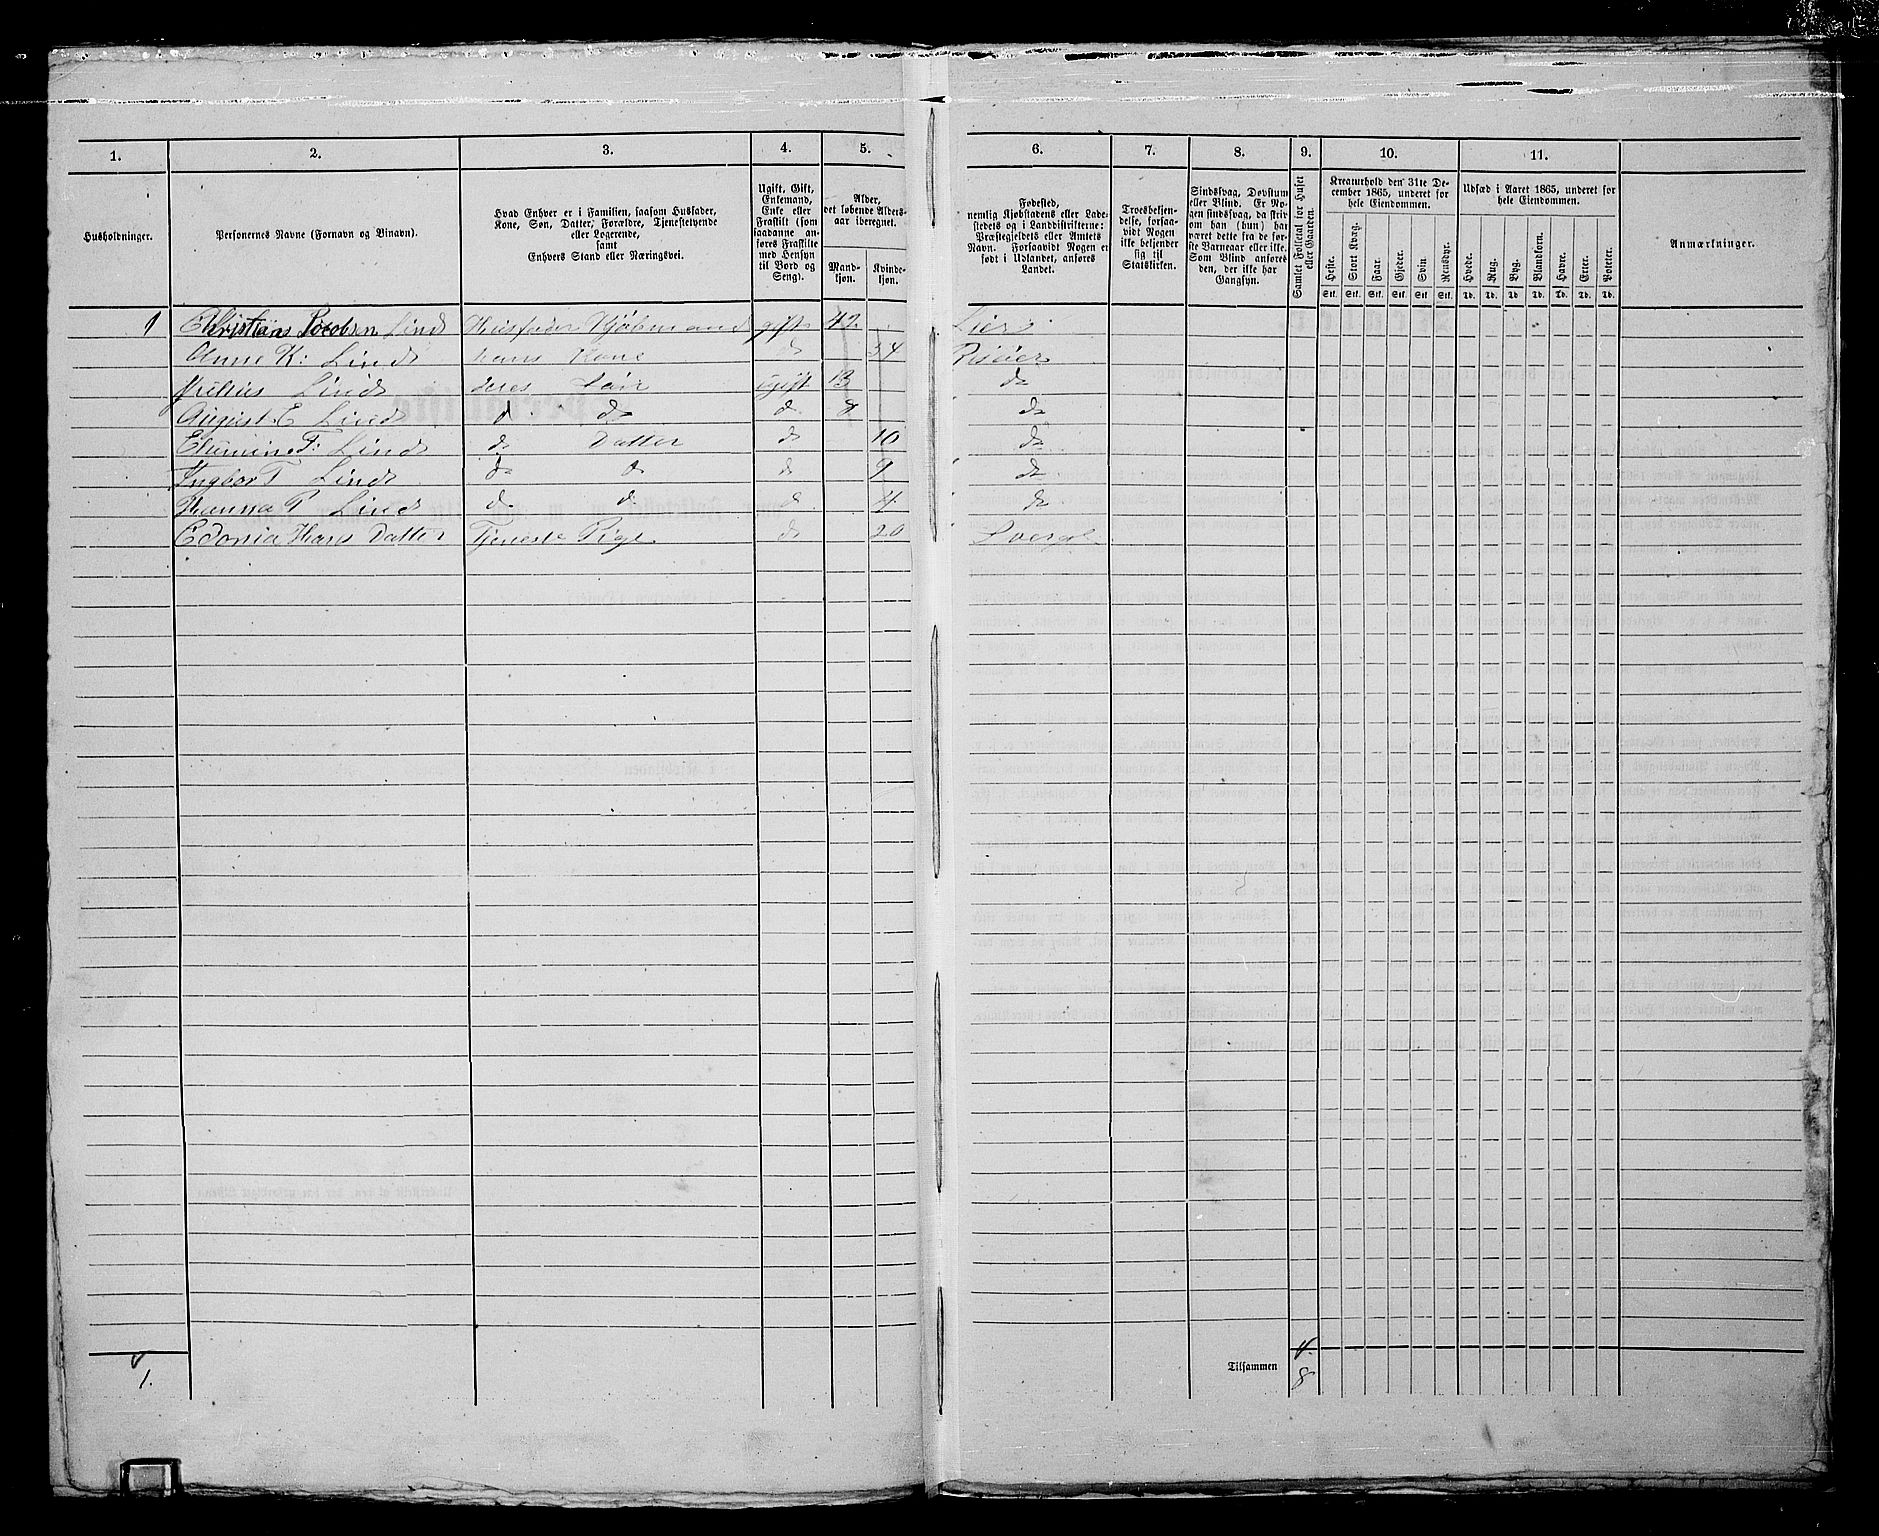 1. 2. 3. 4. 5. 6. 7. 8. 9. 10. 11.
Husholdninger.
Personernes Navne (Fornavn og Binavn).
Hvad Enhver er i Familien, saasom Husfader,
Kone, Søn, Datter, Forældre, Tjenestetyende
eller Logerende,
samt
Enhvers Stand eller Næringsvei.
Ugift, Gift,
Enkemand,
Enke eller
Fraskilt (som
saadanne an-
føres Fraskilte
med Hensyn
til Bord og
Seng).
Alder,
det løbende Alders-
aar iberegnet.
Mand-
kjøn.
Kvinde-
kjøn.
Fødested,
nemlig Kjøbstadens eller Lade-
stedets og i Landdistrikterne:
Præstegjeldets eller Amtets
Navn. Forsaavidt Nogen er
født i Udlandet, anføres
Landet.
Troesbekjen-
delse, forsaa-
vidt Nogen
ikke bekjender
sig til
Statskirken.
Sindssvag, Døvstum
eller Blind. Er No-
gen sindssvag, da skriv
om han (hun) har
været dette fra de før-
ste Barneaar eller ikke.
Som Blind anføres
den, der ikke har
Gangsyn.
Samlet Folketal for Huset
eller Gaarden.
Kreaturhold den 31te De-
cember 1865, underet for
hele Eiendommen.
Heste. Stort Kvæg. Faar. Gjeder. Svin. Rensdyr.
Stk. Stk. Stk. Stk. Stk. Stk.
Udsæd i Aaret 1865, underet for
hele Eiendommen.
Hvede. Rug. Byg. Blandkorn. Havre. Erter. Poteter.
Td. Td. Td. Td. Td. Td. Td.
Anmærkninger.
1 Christians Jocobsen Lind Husfader Kjøbmand gift 42 Lier
Anne K: Lind hans Kone d 34 Risøer
Julius Lind deres Søn ugift 13 d
August E Lind d d d 8 d
F: Lind d Datter d 10 d
Ingbor T Lind d d d 9 d
Hanna P Lind d d d 4 d
Edonia Hans Datter Tjeneste Pige d 20
1.
Tilsammen 8